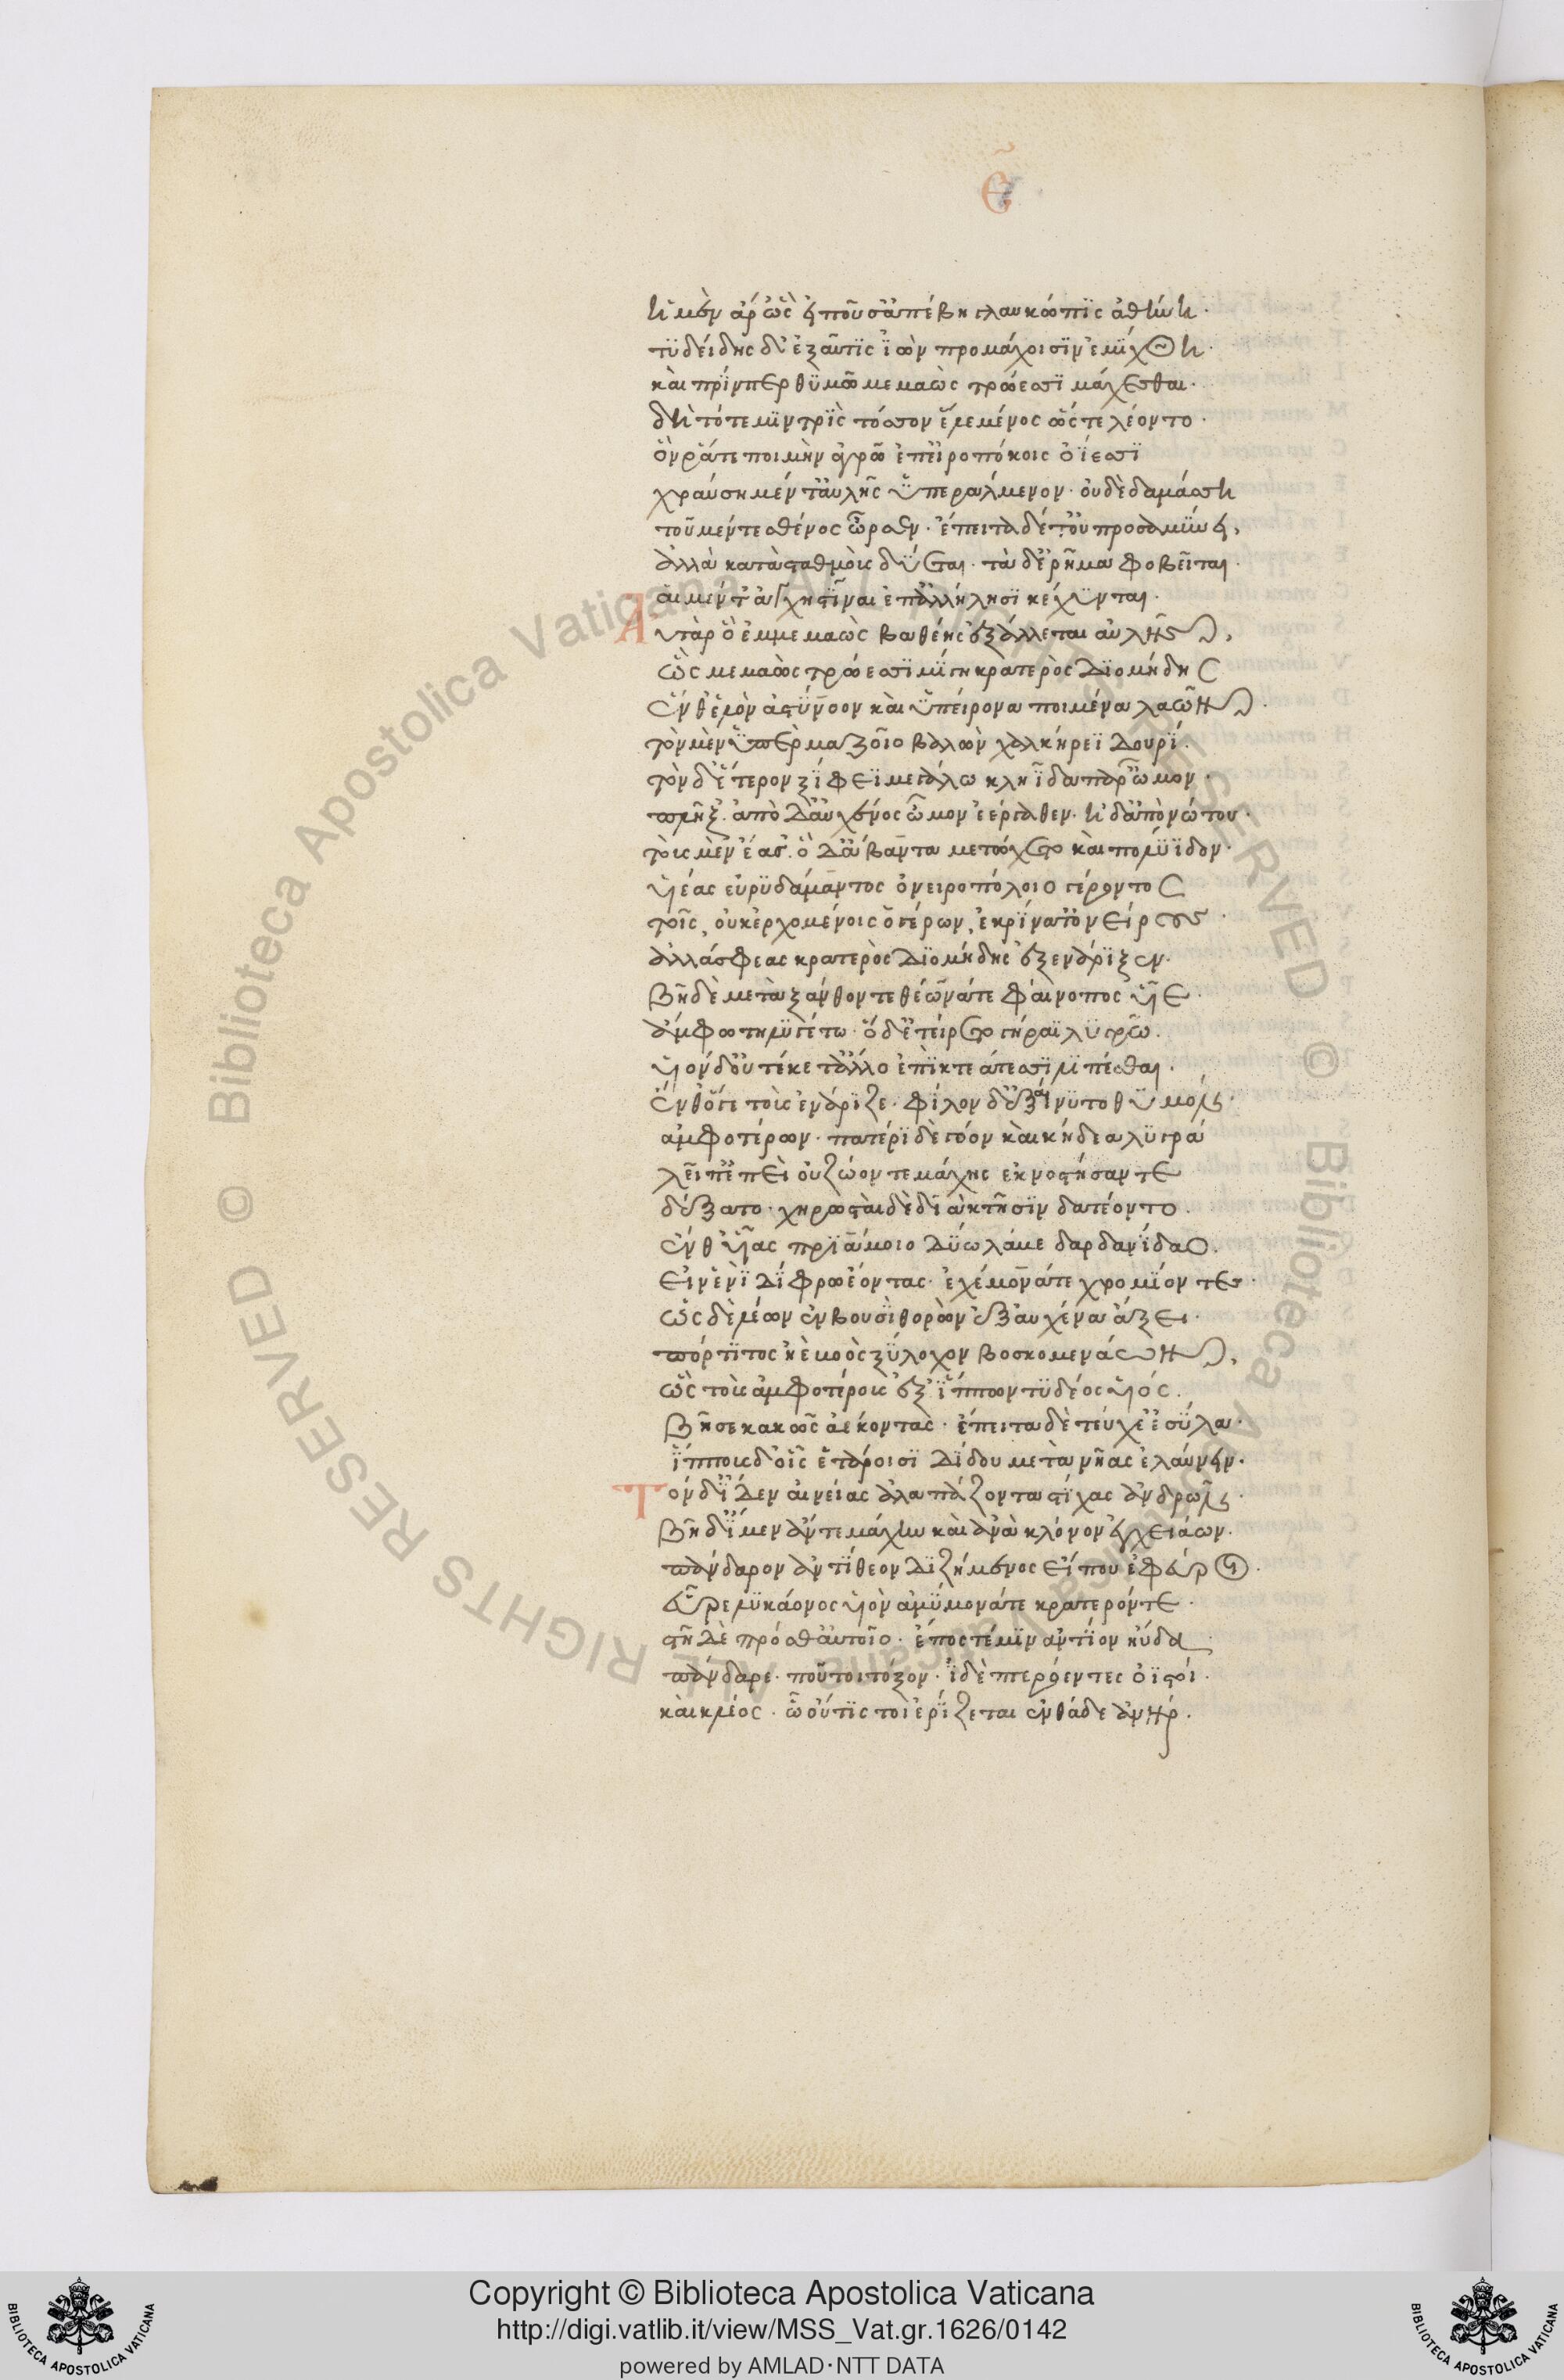 Ε
ἡ μὲν ἄρ ὣς εἰποῦσ ἀπέβη γλαυκῶπϊς ἀθήνη·
τϋδείδης δ' ἐξαῦτϊς ϊὼν προμάχοισϊν ἐμίχθη·
καὶ πρΐν περ θϋμῶ μεμαὼς τρώεσσϊ μάχεσθαι·
δὴ τότε μϊν τρῒς τόσσον ἕλε μένος ὥς τε λέοντα·
ὅν ῥά τε ποιμὴν ἀγρῶ ἐπ εἰροπόκοις ὀΐεσσϊ
χραύση μέν τ αὐλῆς ὑπεράλμενον· οὐδὲ δαμάσση
τοῦ μέν τε σθένος ὦρσεν· ἔπειτα δέ τ οὐ προσαμύνει,
ἀλλὰ κατὰ σταθμοὺς δύεται· τὰ δ ἐρῆμα φοβεῖται·
αἱ μέν τ ἀγχηστῖναι ἐπ ἀλλήλησϊ κέχϋνται·
Αὐτὰρ ὃ ἐμμεμαὼς βαθέης ἐξάλλεται αὐλῆς,
ὣς μεμαὼς τρώεσσϊ μίγη κρατερὸς Δϊομήδης
ἔνθ ἕλεν ἀστύνοον καὶ ὑπείρονα ποιμένα λαῶν·
τὸν μὲν ὑπὲρ μαζοῖο βαλὼν χαλκήρεϊ Δουρί·
τὸν δ' ἕτερον ξίφεϊ μεγάλω κληῗδα παρ ὦμον·
πλῆξ· ἀπὸ Δ αὐχένος ὦμον ἐέργαθεν· ἠδ ἀπὸ νώτου·
τοὺς μὲν ἔασ· ὃ Δ ἄβαντα μετώχετο καὶ πολύϊδον·
υἱέας εὐρϋδάμαντος ὀνειροπόλοιο γέροντος
τοῖς, οὐκ ἐρχομένοις ὁ γέρων, ἐκρίνατ ὀνείρους·
ἀλλά σφεας κρατερὸς Δϊομήδης ἐξενάρϊξεν·
βῆ δὲ μετὰ ξάνθον τε θόωνά τε φαίνοπος υἷε
ἄμφω τηλϋγέτω· ὃ δ ἐτείρετο γήραϊ λϋγρῶ·
υἱὸν δ οὐ τέκετ ἄλλον ἐπῒ κτεάτεσσϊ λϊπέσθαι·
ἔνθ ὅγε τοὺς ἐνάρϊζε· φίλον δ ἐξαίνϋτο θϋμόν·
ἀμφοτέρων· πατέρϊ δὲ γόον καὶ κήδεα λϋγρά
λεῖπ ἐπεὶ οὐ ζώοντε μάχης ἐκνοστήσαντε
δέξατο· χηρωσταὶ δὲ δϊὰ κτῆσϊν δατέοντο·
ἔνθ υἷας πρϊάμοιο Δύω λάβε δαρδανίδαο·
εἰν ἑνῒ Δίφρω ἐόντας· ἐχέμονά τε χρομίον τε·
ὡς δὲ λέων ἐν βουσῒ θορὼν ἐξ αὐχένα ἄξει·
πόρτϊος ἠὲ βοὸς ξύλοχον βοσκομενάων,
ὣς τοὺς ἀμφοτέρους ἐξ ἵππων τϋδέος υἱός·
βῆσε κακῶς ἀέκοντας· ἔπειτα δὲ τεύχε ἐσύλα·
ἵππους δ οἷς ἑτάροισϊ Δίδου μετὰ νῆας ἐλαύνειν·
Τὸν δ ἴΔεν αἰνείας ἀλαπάζοντα στίχας ἀνδρῶν·
βῆ δ ἴμεν ἄν τε μάχην καὶ ἀνὰ κλόνον ἐγχειάων·
πάνδαρον ἀντίθεον Δϊζήμενος εἴ που ἐφεύροι·
εὗρε λϋκάονος υἱὸν ἀμύμονά τε κρατερόν τε·
στῆ Δὲ πρόσθ αὐτοῖο· ἔπος τέ μϊν ἀντίον ηὔδα
πάνδαρε· ποῦ τοι τόξον· ἰδὲ πτερόεντες ὀϊστοί·
καὶ κλέος· ὧ οὔτϊς τοὶ ἐρίζεται ἐνθάδε ἀνήρ·
© Biblioteca Apostolica Vaticana ALL RIGHTS RESERVED © Biblioteca Apostolica Vaticana ALL RIGHTS RESERVED
Copyright © Biblioteca Apostolica Vaticana
http://digi.vatlib.it/view/MSS_Vat.gr.1626/0142
powered by AMLAD·NTT DATA
BIBLIOTECA APOSTOLICA VATICANA
BIBLIOTECA APOSTOLICA VATICANA